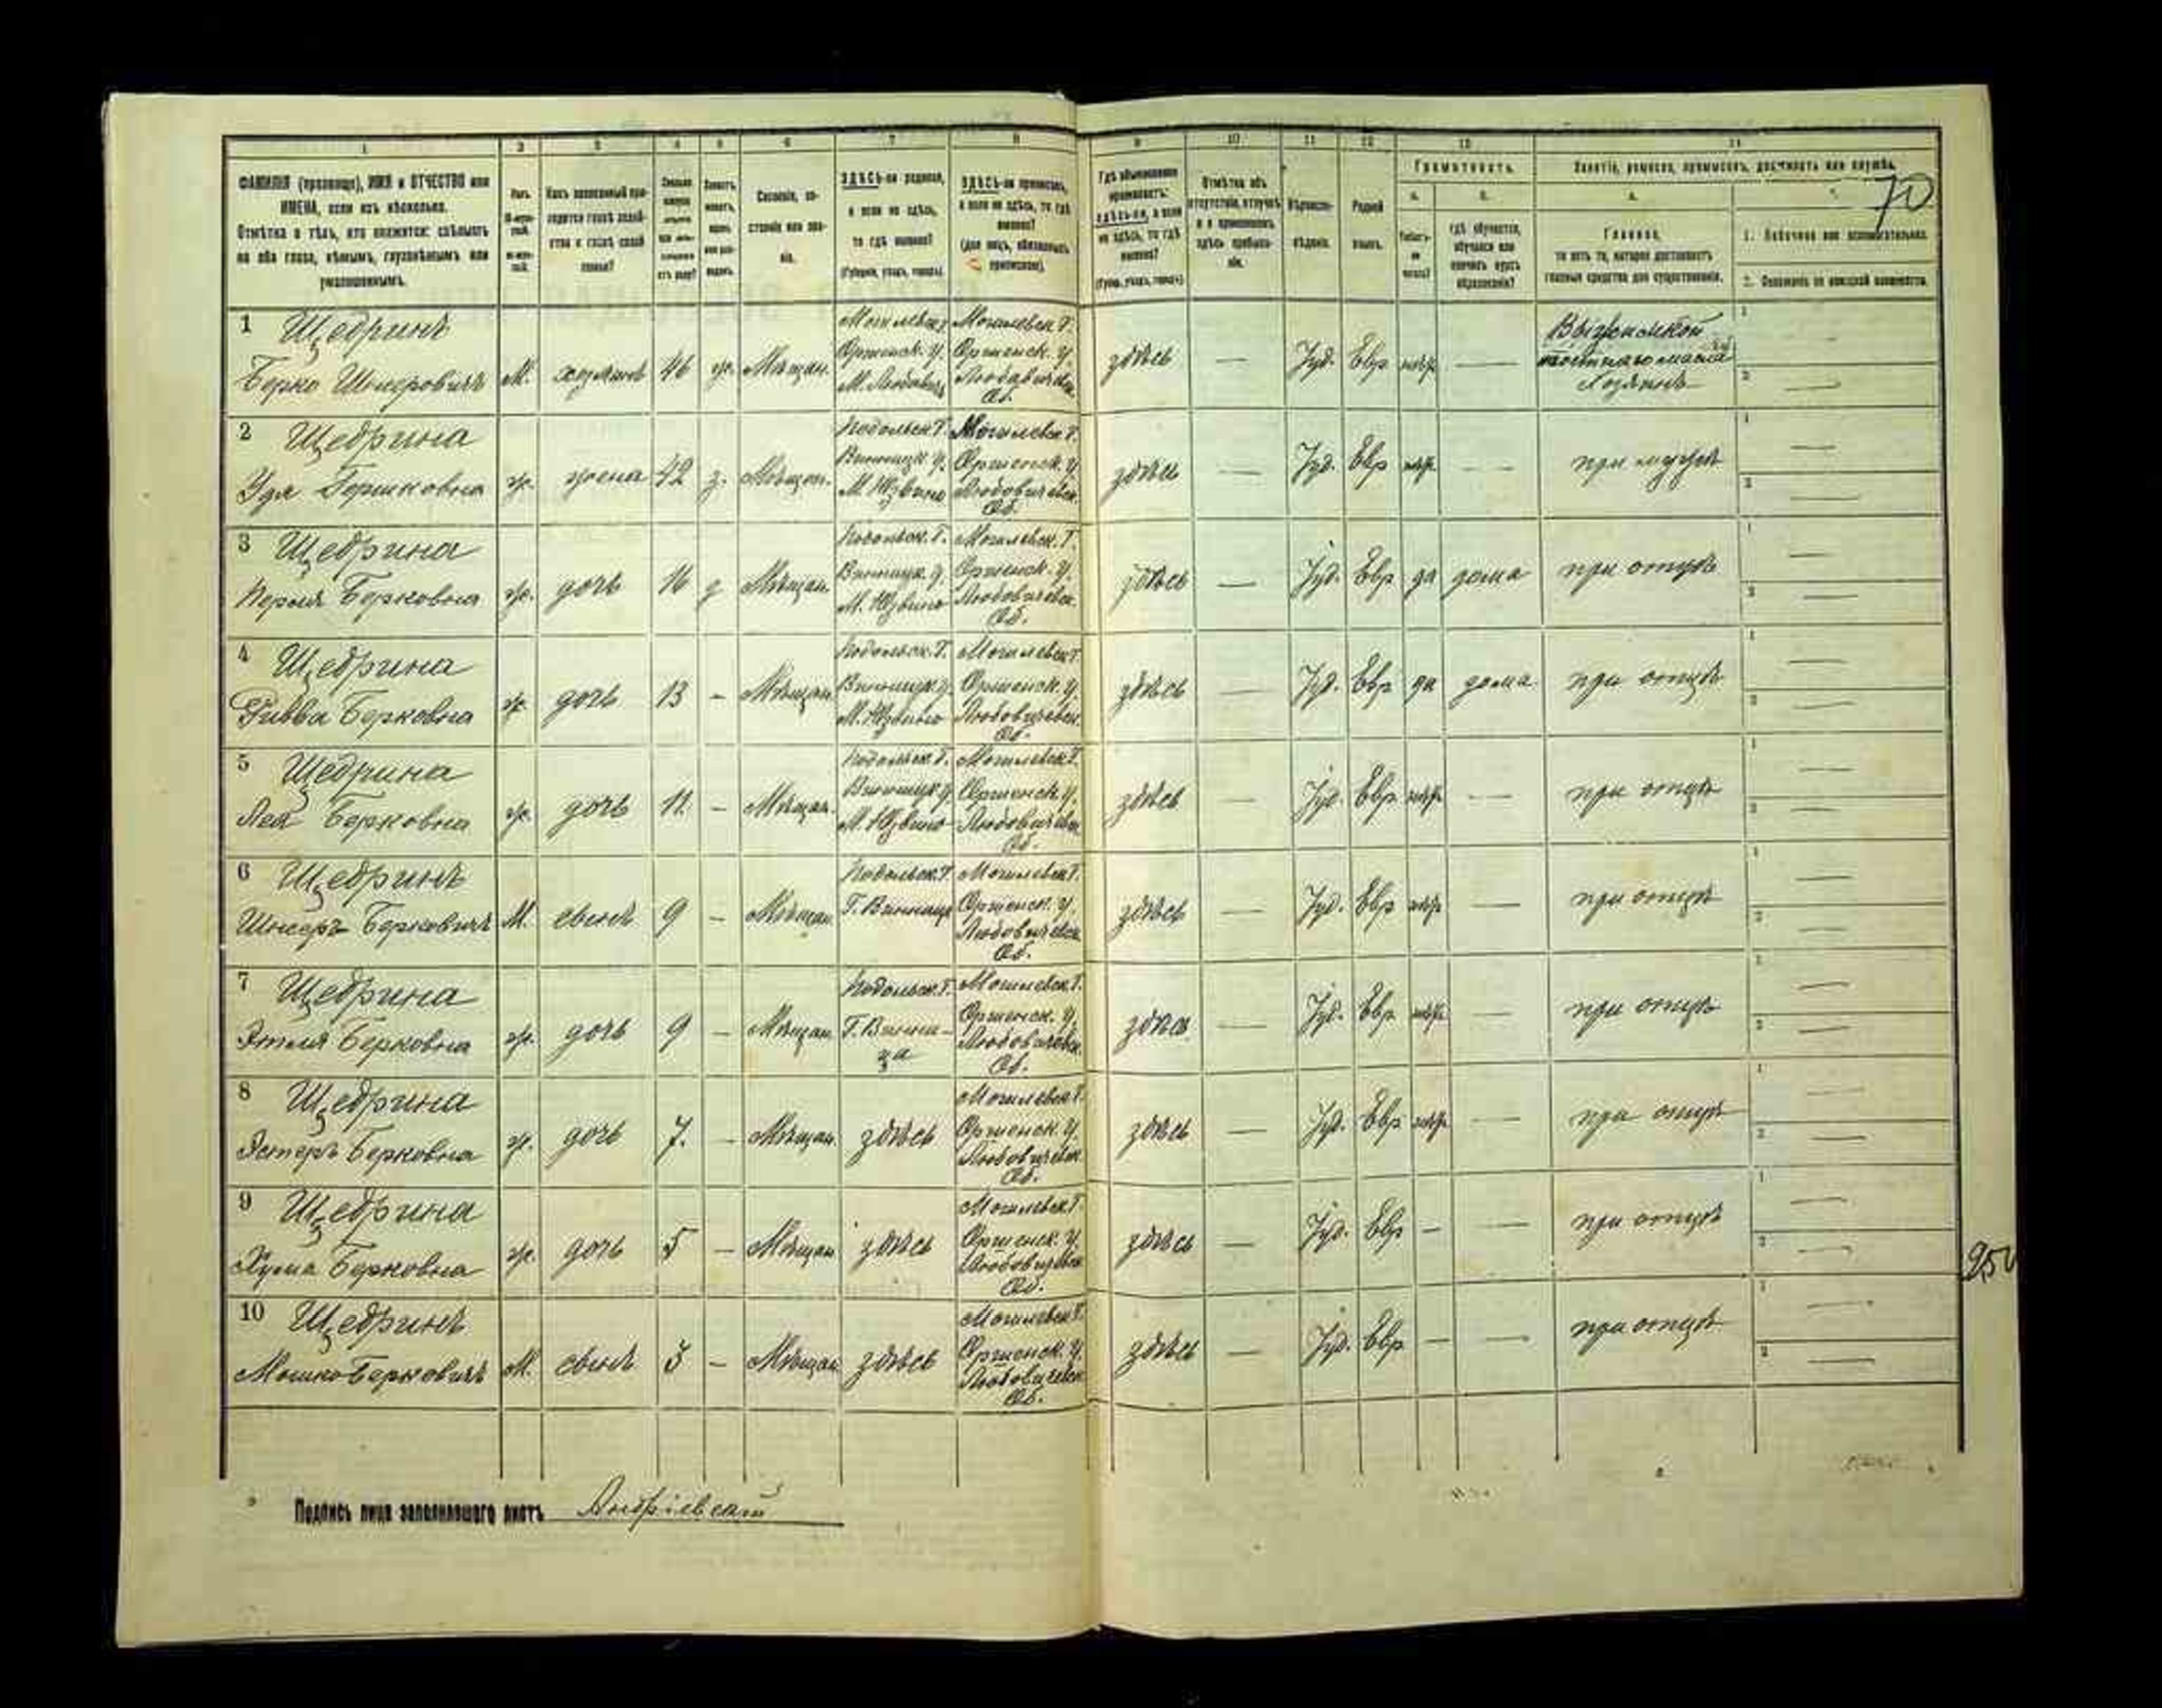 1 2 3 4 5 6 7 8 9 10 11 12 13 14
ФАМИЛІЯ (прозвище), ИМЯ и ОТЧЕСТВО или ИМЕНА, если ихъ нѣсколько.
Отмѣтка о тѣхъ, кто окажется: слѣпымъ на оба глаза, нѣмымъ, глухонѣмымъ или умалишеннымъ.
Сословіе, состояніе или званіе.
ЗДѢСЬ-ли родился, а если не здѣсь, то гдѣ именно?
(Губернія, уѣздъ, городъ).
ЗДѢСЬ-ли приписанъ, а если не здѣсь, то гдѣ именно?
(для лицъ, обязанныхъ припискою).
Гдѣ обыкновенно проживаетъ: здѣсь-ли, а если не здѣсь, то гдѣ именно?
(Губер., уѣздъ, городъ).
Отмѣтка объ отсутствіи, отлучкѣ и о временномъ здѣсь пребываніи.
Вѣроисповѣданіе.
Родной языкъ.
Грамотность.
а. б.
Гдѣ обучается, обучался или кончилъ курсъ образованія?
Занятіе, ремесло, промыселъ, должность или служба.
70
Главное,
то есть то, которое доставляетъ главныя средства для существованія.
1. Побочное или вспомогательное.
2. Положеніе по воинской повинности.
1 Щедринъ
Берко Шнеровичъ М. хозяинъ 46 ж. Мѣщан. Оршанск. у. М. Любавичъ Могилевск. Г. Оршенск. у. Любавичевск. Об. здѣсь — Іуд. Евр нѣт — Хозяинъ
2 Щедрина
Удя Гершковна ж. жена 42 з. Мѣщан. Подольск. Г. Винницк. у. М. Юзвино Могилевск. Г. Оршенск. у. Любовичевск. Об. здѣсь — Іуд. Евр нѣт — при мужѣ
3 Щедрина
Перля Берковна ж. дочь 16 д Мѣщан. Подольск. Г. Винницк. у. М. Юзвино Могилевск. Г. Оршенск. у. Любовичевск. Об. здѣсь — Іуд. Евр да дома при отцѣ
4 Щедрина
Ривва Берковна ж. дочь 13 – Мѣщан. Подольск. Г. Винницк. у. М. Юзвино Могилевск. Г. Оршенск. у. Любовичевск. Об. здѣсь — Іуд. Евр да дома при отцѣ
5 Щедрина
Лея Берковна ж. дочь 11. – Мѣщан. Подольск. Г. Винницк. у. М. Юзвино Могилевск. Г. Оршенск. у. Любовичевск. Об. здѣсь — Іуд. Евр нѣт — при отцѣ
6 Щедринъ
Шнееръ Берковичъ М. сынъ 9 – Мѣщан. Подольск. Г. Г. Винница Могилевск. Г. Оршенск. у. Любовичевск. Об. здѣсь — Іуд. Евр нѣт — при отцѣ
7 Щедрина
Этля Берковна ж. дочь 9 – Мѣщан. Подольск. Г. Г. Винница Могилевск. Г. Оршенск. у. Любовичевск. Об. здѣсь — Іуд. Евр нѣт — при отцѣ
8 Щедрина
Эстеръ Берковна ж. дочь 7. – Мѣщан. здѣсь Могилевск. Г. Оршенск. у. Любовичевск. Об. здѣсь — Іуд. Евр нѣт — при отцѣ
9 Щедрина
Хума Берковна ж. дочь 5 – Мѣщан здѣсь Могилевск. Г. Оршенск. у. Любовичевск. Об. здѣсь — Іуд. Евр – — при отцѣ
10 Щедринъ
Мошко Берковичъ М. сынъ – Мѣщан здѣсь Могилевск. Г. Оршенск. у. Любовичевск. Об. здѣсь — Іуд. Евр — — при отцѣ
Подпись лица заполнившаго листъ Андріевскій